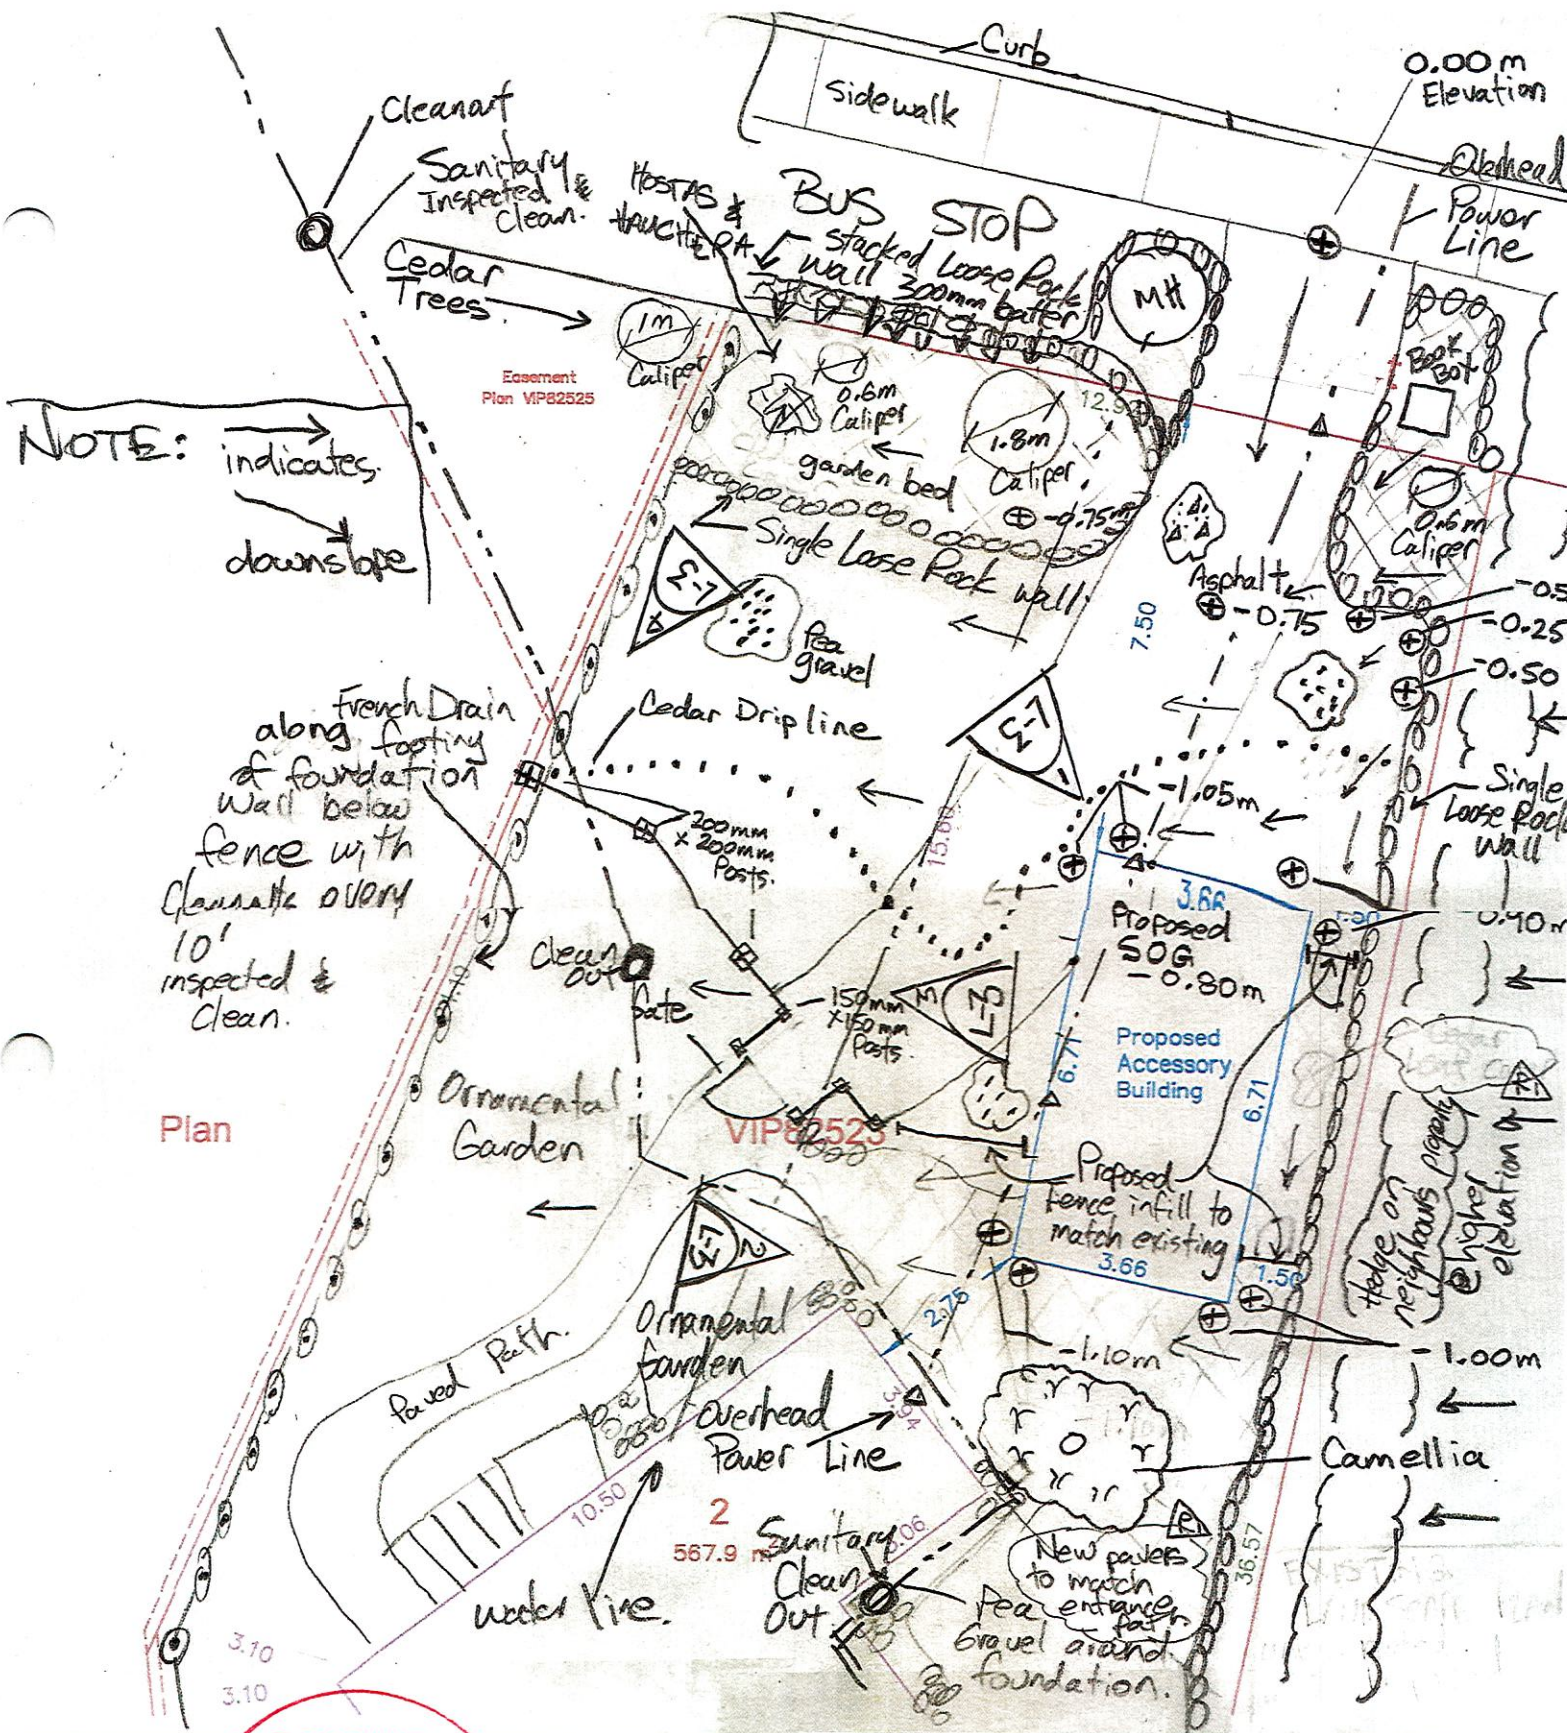 Curb
0.00 m
Elevation
Sidewalk
Cleanout
Overhead
Power
Line
Sanitary
Inspected &
Clean.
HOSTAS &
BUS STOP
Stacked Loose Rock
Wall 300mm batter
MH
Cedar
Trees
1m
Caliper
Easement
Plan VIP82525
0.6m
Caliper
1.8m
Caliper
garden bed
-0.75m
Book
Box
0.6m
Caliper
NOTE:
indicates
downslope
Single Loose Rock wall
L-3
4
Pea
gravel
Asphalt
-0.75
7.50
-0.25
-0.50
French Drain
along footing
of foundation
Wall below
fence with
Cleanouts every
10'
inspected &
Clean.
Cedar Dripline
L-3
1
-1.05m
Single
Loose Rock
Wall
200mm
x 200mm
Posts.
15.60
3.66
1.50
Proposed
SOG
-0.80m
Clean
Out
Gate
150mm
x150mm
Posts.
L-3
3
6.71
Proposed
Accessory
Building
6.71
Ornamental
Garden
Plan
VIP82523
Proposed
Fence infill to
match existing
Hedge on
neighbours property
@ higher
elevation
L-3
2
3.66
1.50
2.75
Ornamental
Garden
-1.10m
-1.00m
Paved Path.
Overhead
Power Line
3.94
Camellia
10.50
2
567.9 m²
Sanitary
Clean
Out
water line.
New pavers
to match
entrance
path.
Pea
Gravel around
foundation.
36.57
3.10
3.10